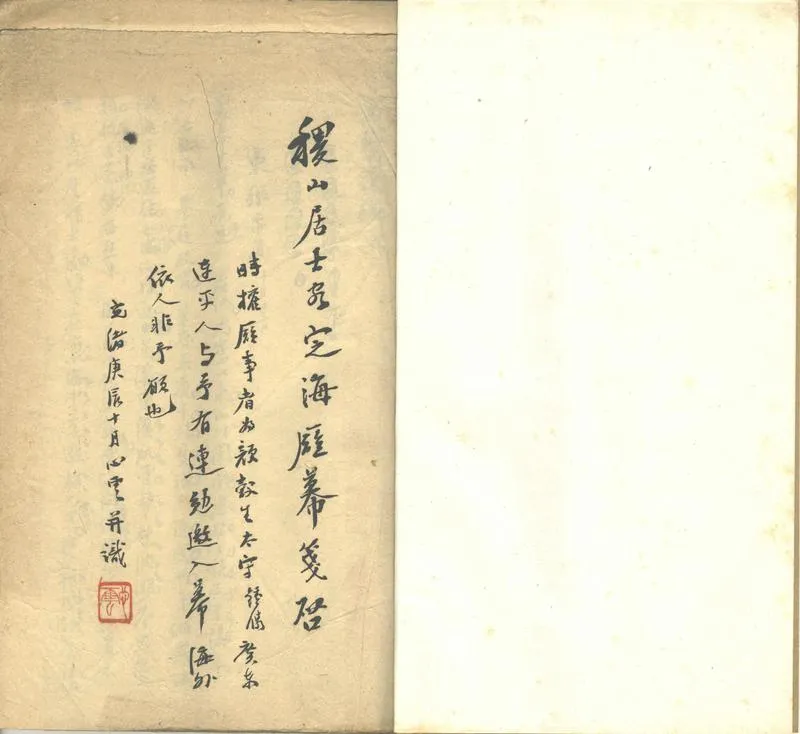 稷山居士客定海廳幕箋启
時權廳事者为顏穀生太守鍾廣東
連平人与予有連邀入幕海外
依人非予願也
光緒庚辰十月心雲并識
心雲